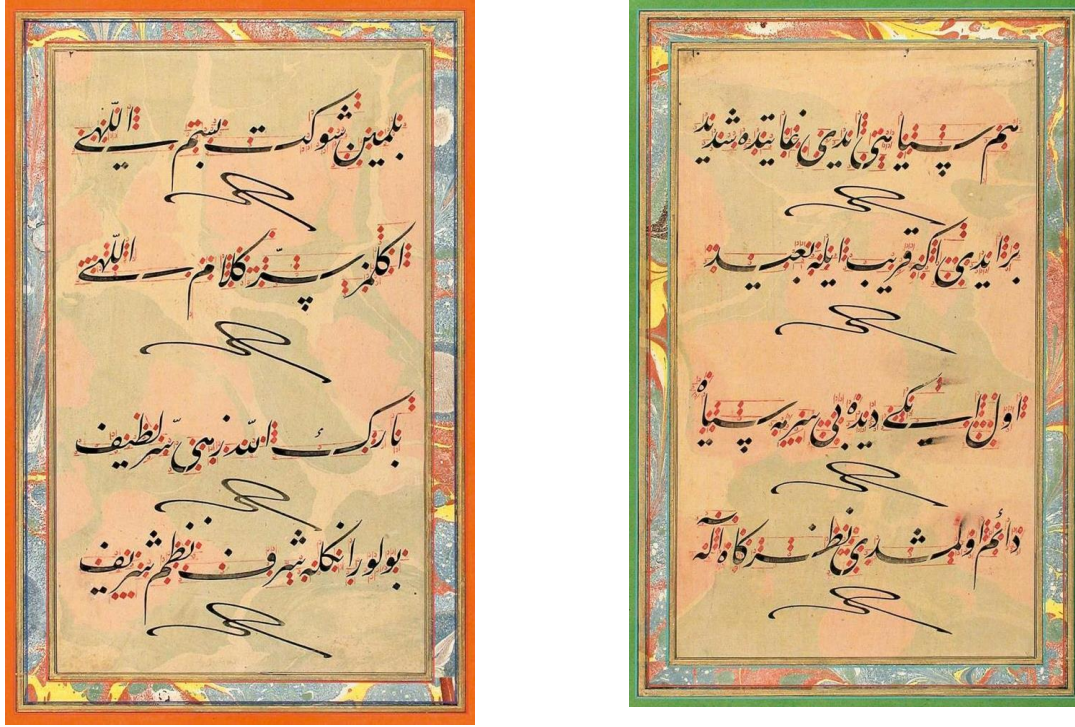 بلمین شوکت بسم اللّهی
اکلمز سرّ کلام اللّهی
بارک الله زهی سرّ لطیف
بولور انکله شرف نظم شریف
هم سیاهی ایدی غایتده شدید
بر ایدی اکه قریب ایله بعید
اول ایکی دیده بی سرمه سیاه
دائم اولمشدی نظرکاه اله